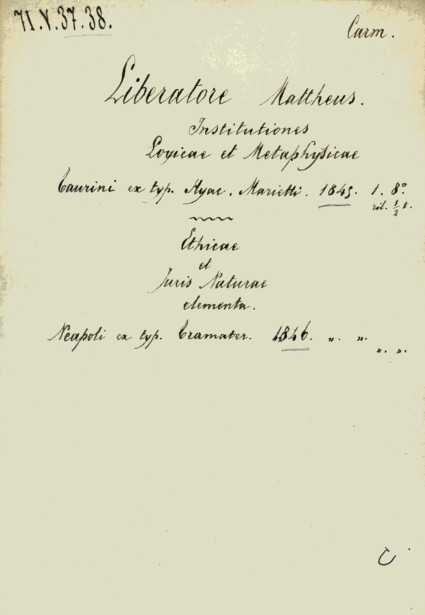 71.V.37.38.
Carm.
Liberatore Mattheus.
Institutiones
Logicae et Metaphysicae
Taurini ex typ. Hyac. Marietti. 1845. 1. 8°
ril. 1/2 t.
Ethicae
et
Juris Naturae
elementa.
Neapoli ex typ. Tramater. 1846. „ „.
„. „.
C